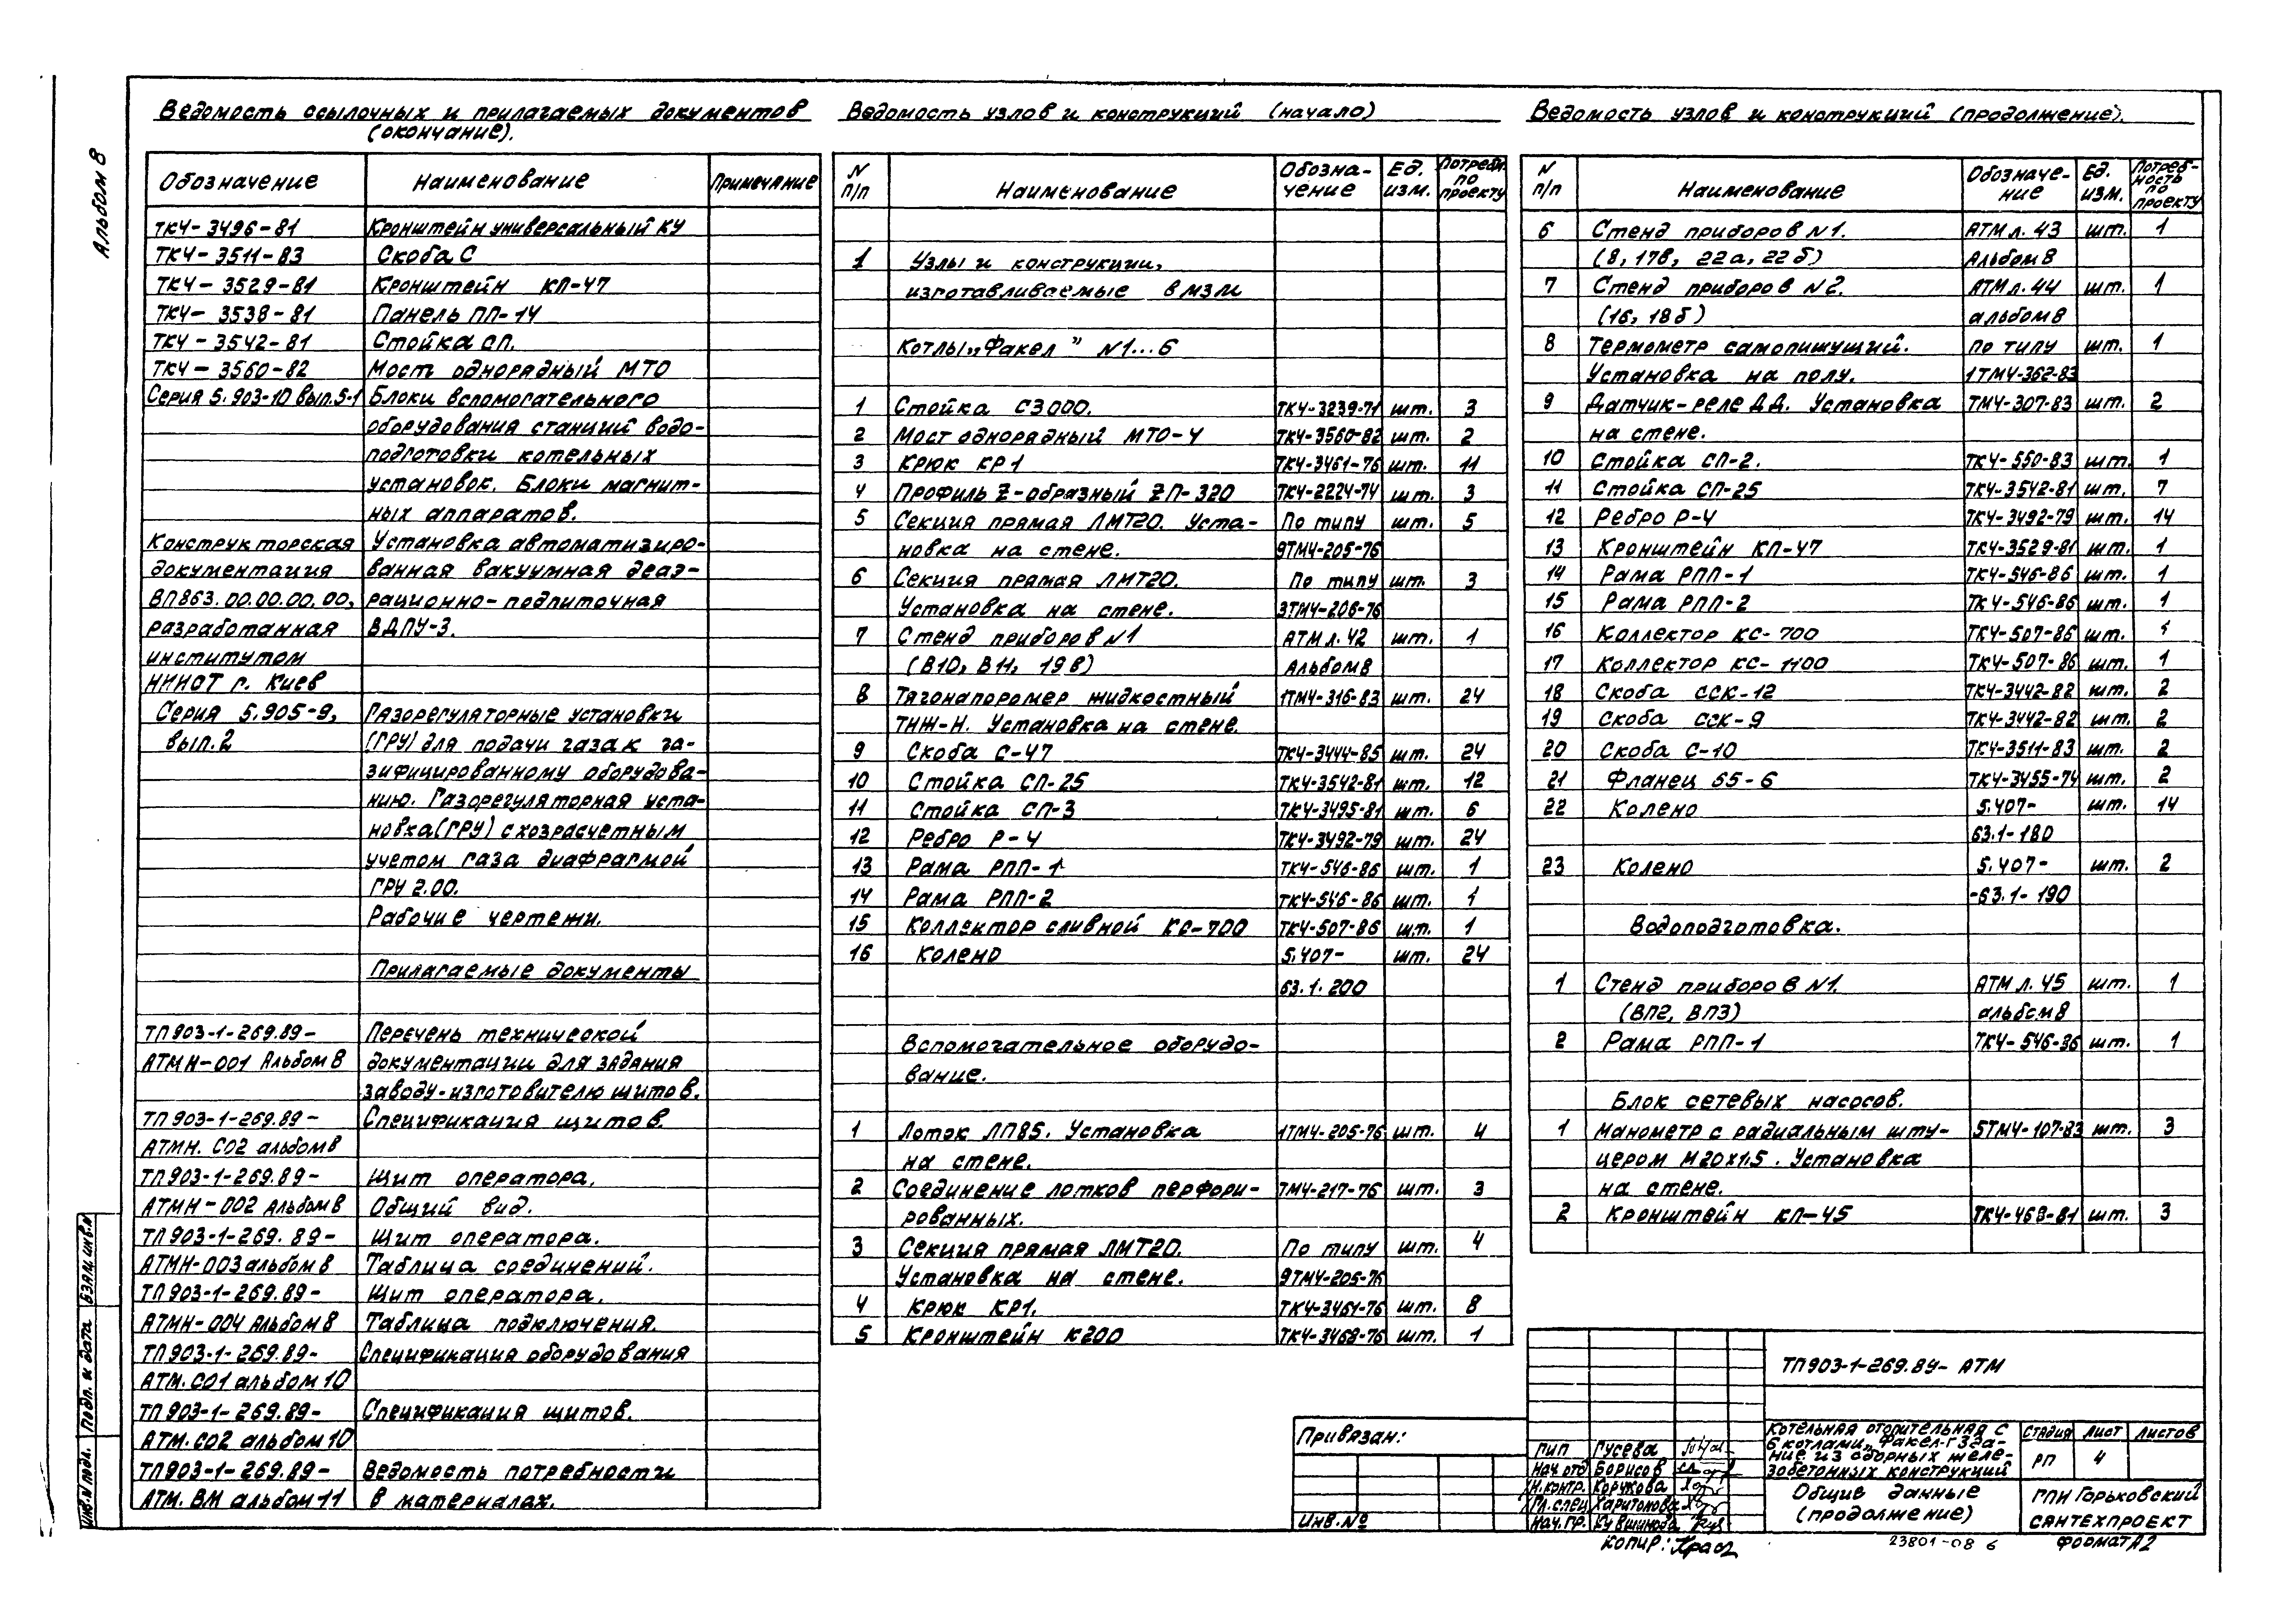 Альбом 8
Ведомость ссылочных и прилагаемых документов
(окончание).
Обозначение Наименование Примечание
ТК4-3496-81 Кронштейн универсальный КУ
ТК4-3511-83 Скоба С
ТК4-3529-81 Кронштейн КП-47
ТК4-3538-81 Панель ПП-14
ТК4-3542-81 Стойка СП.
ТК4-3560-82 Мост однорядный МТО
Серия 5.903-10 вып.5-1 Блоки вспомогательного
оборудования станций водо-
подготовки котельных
установок. Блоки магнит-
ных аппаратов.
Конструкторская Установка автоматизиро-
документация ванная вакуумная деаэ-
ВП863.00.00.00.00, рационно-подпиточная
разработанная ВДПУ-3.
институтом
НИИСТ г. Киев
Серия 5.905-9, Газорегуляторные установки
вып.2 (ГРУ) для подачи газа к га-
зифицированному оборудова-
нию. Газорегуляторная уста-
новка (ГРУ) с хозрасчетным
учетом газа диафрагмой
ГРУ 2.00.
Рабочие чертежи.
Прилагаемые документы
ТП903-1-269.89- Перечень технической
АТМН-001 Альбом 8 документации для задания
заводу-изготовителю щитов.
ТП903-1-269.89- Спецификация щитов.
АТМН. СО2 альбом 8
ТП903-1-269.89- Щит оператора.
АТМН-002 Альбом 8 Общий вид.
ТП903-1-269.89- Щит оператора.
АТМН-003 альбом 8 Таблица соединений.
ТП903-1-269.89- Щит оператора.
АТМН-004 Альбом 8 Таблица подключения.
ТП903-1-269.89- Спецификация оборудования
АТМ.СО1 альбом 10
ТП903-1-269.89- Спецификация щитов.
АТМ.СО2 альбом 10
ТП903-1-269.89- Ведомость потребности
АТМ. ВМ альбом 11 в материалах.
Взам. инв. N
Подп. и дата
Инв. N подл.
Ведомость узлов и конструкций (начало)
N п/п Наименование Обозна-чение Ед. изм. Потребн. по проекту
1 Узлы и конструкции,
изготавливаемые в МЗМ
Котлы „Факел" N1...6
1 Стойка С3000. ТК4-3239-71 шт. 3
2 Мост однорядный МТО-4 ТК4-3560-82 шт. 2
3 Крюк КР1 ТК4-3461-76 шт. 11
4 Профиль Z-образный ZП-320 ТК4-2224-74 шт. 3
5 Секция прямая ЛМТ20. Уста- По типу шт. 5
новка на стене. 9ТМ4-205-76
6 Секция прямая ЛМТ20. По типу шт. 3
Установка на стене. 3ТМ4-206-76
7 Стенд приборов N1 АТМ л. 42 шт. 1
(В10, В11, 19в) Альбом 8
8 Тягонапоромер жидкостный 1ТМ4-316-83 шт. 24
ТНЖ-Н. Установка на стене.
9 Скоба С-47 ТК4-3444-85 шт. 24
10 Стойка СП-25 ТК4-3542-81 шт. 12
11 Стойка СП-3 ТК4-3495-81 шт. 6
12 Ребро Р-4 ТК4-3492-79 шт. 24
13 Рама РПП-1 ТК4-546-86 шт. 1
14 Рама РПП-2 ТК4-546-86 шт. 1
15 Коллектор сливной КС-700 ТК4-507-86 шт. 1
16 Колено 5.407- шт. 24
63.1.200
Вспомогательное оборудо-
вание.
1 Лоток ЛП85. Установка 1ТМ4-205-76 шт. 4
на стене.
2 Соединение лотков перфори- ТМ4-217-76 шт. 3
рованных.
3 Секция прямая ЛМТ20. По типу шт. 4
Установка на стене. 9ТМ4-205-76
4 Крюк КР1. ТК4-3461-76 шт. 8
5 Кронштейн К200 ТК4-3468-76 шт. 1
Ведомость узлов и конструкций (продолжение).
N п/п Наименование Обозначе-ние Ед. изм. Потреб-ность по проекту
6 Стенд приборов N1. АТМ л. 43 шт. 1
(8, 17в, 22а, 22б) Альбом 8
7 Стенд приборов N2. АТМ л. 44 шт. 1
(16, 18б) альбом 8
8 Термометр самопишущий. По типу шт. 1
Установка на полу. 1ТМ4-362-83
9 Датчик-реле ДД. Установка ТМ4-307-83 шт. 2
на стене.
10 Стойка СП-2. ТК4-550-83 шт. 1
11 Стойка СП-25 ТК4-3542-81 шт. 7
12 Ребро Р-4 ТК4-3492-79 шт. 14
13 Кронштейн КП-47 ТК4-3529-81 шт. 1
14 Рама РПП-1 ТК4-546-86 шт. 1
15 Рама РПП-2 ТК4-546-86 шт. 1
16 Коллектор КС-700 ТК4-507-86 шт. 1
17 Коллектор КС-1100 ТК4-507-86 шт. 1
18 Скоба ССК-12 ТК4-3442-82 шт. 2
19 Скоба ССК-9 ТК4-3442-82 шт. 2
20 Скоба С-10 ТК4-3511-83 шт. 2
21 Фланец 65-6 ТК4-3455-74 шт. 2
22 Колено 5.407- шт. 14
63.1-180
23 Колено 5.407- шт. 2
-63.1-190
Водоподготовка.
1 Стенд приборов N1. АТМ л. 45 шт. 1
(ВП2, ВП3) альбом 8
2 Рама РПП-1 ТК4-546-86 шт. 1
Блок сетевых насосов.
1 Манометр с радиальным шту- 5ТМ4-107-83 шт. 3
цером М20х1,5. Установка
на стене.
2 Кронштейн КП-45 ТК4-468-81 шт. 3
Привязан:
Инв. №
ТП903-1-269.89-АТМ
ГИП Гусева
Нач. отд Борисов
Н. контр. Корукова
Гл. спец Харитонова
Нач. гр. Кувшинова
Котельная отопительная с
6 котлами „Факел-Г" Зда-
ние из сборных желе-
зобетонных конструкций
Стадия Лист Листов
РП 4
Общие данные
(продолжение)
ГПИ Горьковский
САНТЕХПРОЕКТ
Копир:
23801-08 6
Формат А2